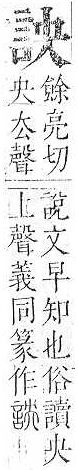 詇
餘亮切
央厺聲
說文早知也俗讀央
上聲義同篆作詇